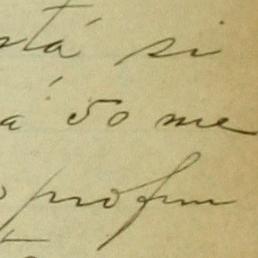 stá si
á 50 me
o profun